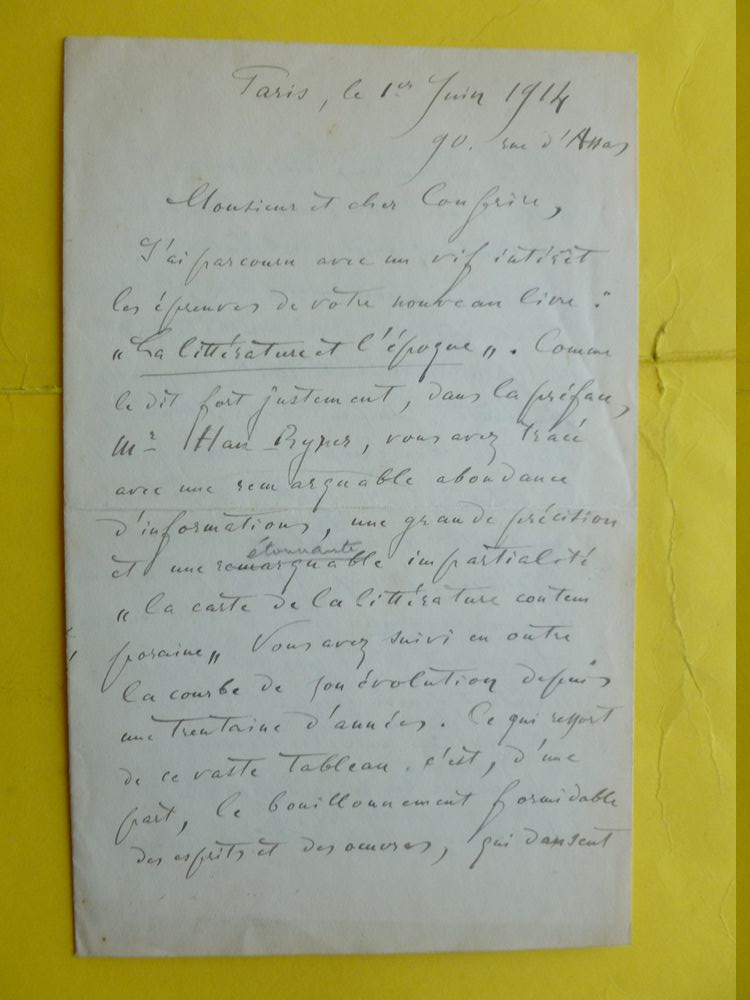 Paris, le 1er Juin 1914
90. rue d'Assas
Monsieur et cher Confrère,
J'ai parcouru avec un vif intérêt
les épreuves de votre nouveau livre :
"La littérature et l'époque". Comme
le dit fort justement, dans la préface,
Mr Han Ryner, vous avez tracé
avec une remarquable abondance
d'informations, une grande précision
étonnante
et une remarquable impartialité
"la carte de la littérature contem
poraine" Vous avez suivi en outre
la courbe de son évolution depuis
une trentaine d'années. Ce qui ressort
de ce vaste tableau c'est, d'une
part, le bouillonnement formidable
des esprits et des oeuvres, qui dansent